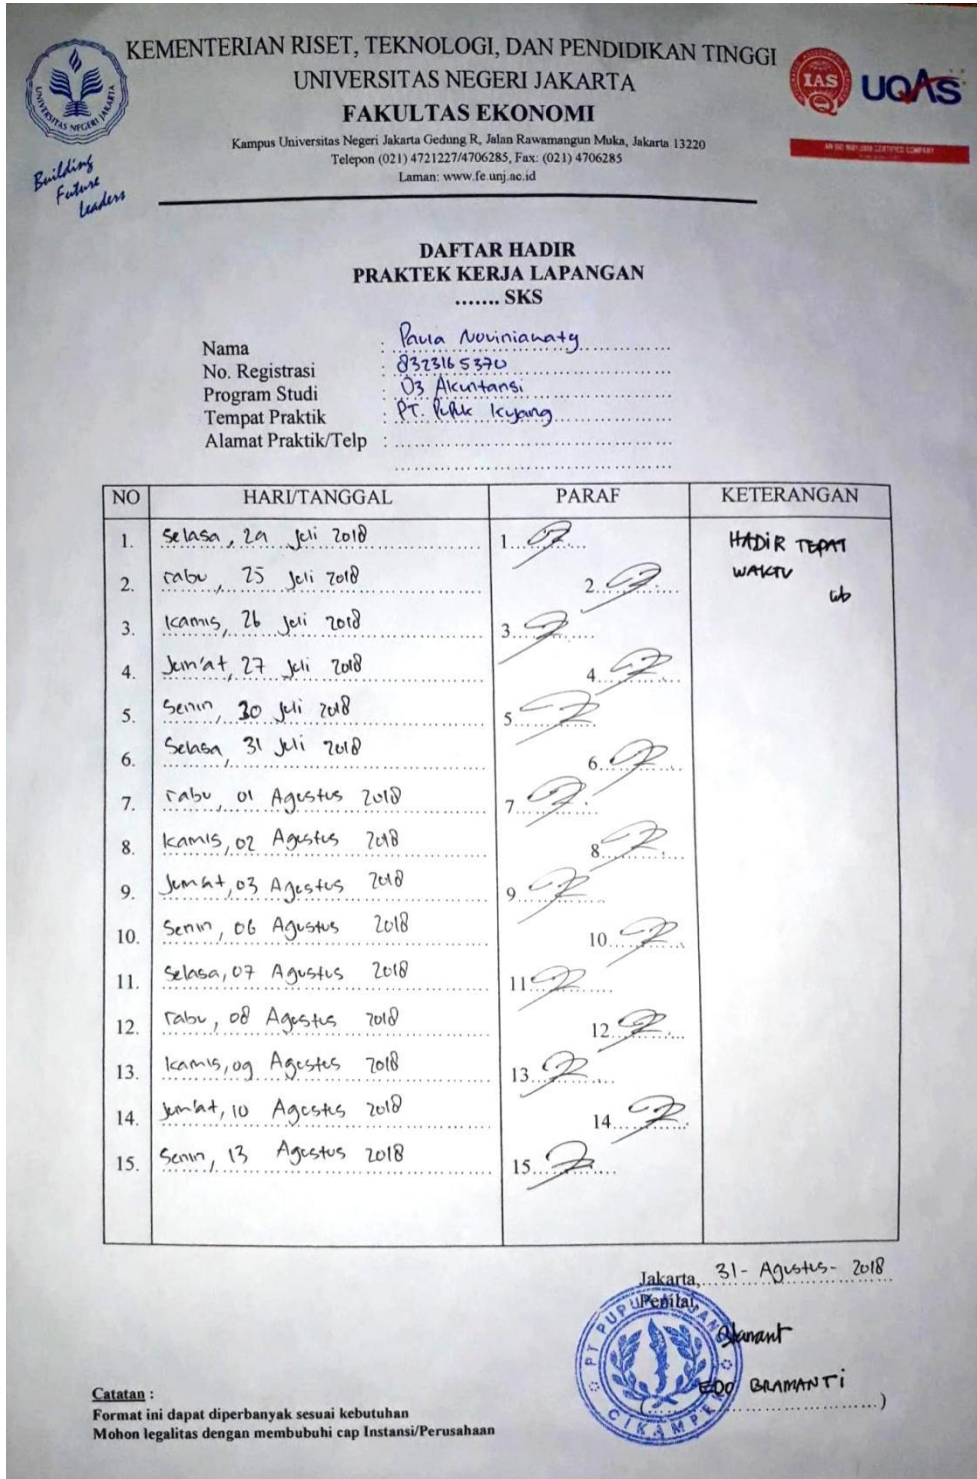 KEMENTERIAN RISET, TEKNOLOGI, DAN PENDIDIKAN TINGGI
UNIVERSITAS NEGERI JAKARTA
FAKULTAS EKONOMI
Kampus Universitas Negeri Jakarta Gedung R, Jalan Rawamangun Muka, Jakarta 13220
Telepon (021) 4721227/4706285, Fax: (021) 4706285
Laman: www.fe.unj.ac.id
UNIVERSITAS NEGERI JAKARTA
Building
Future
Leaders
IAS
UQAS
AN ISO 9001:2008 CERTIFIED COMPANY
DAFTAR HADIR
PRAKTEK KERJA LAPANGAN
....... SKS
Nama : Paula Novinianaty
No. Registrasi : 8323165370
Program Studi : D3 Akuntansi
Tempat Praktik : PT. Pupuk Kujang
Alamat Praktik/Telp :
NO HARI/TANGGAL PARAF KETERANGAN
1. Selasa, 24 Juli 2018 1. HADIR TEPAT
WAKTU
2. rabu, 25 Juli 2018 2.
3. Kamis, 26 Juli 2018 3.
4. Jum'at, 27 Juli 2018 4.
5. Senin, 30 Juli 2018 5.
6. Selasa, 31 Juli 2018 6.
7. rabu, 01 Agustus 2018 7.
8. Kamis, 02 Agustus 2018 8.
9. Jum'at, 03 Agustus 2018 9.
10. Senin, 06 Agustus 2018 10.
11. Selasa, 07 Agustus 2018 11.
12. rabu, 08 Agustus 2018 12.
13. Kamis, 09 Agustus 2018 13.
14. Jum'at, 10 Agustus 2018 14.
15. Senin, 13 Agustus 2018 15.
Jakarta, 31 - Agustus - 2018
Penilai,
PT PUPUK KUJANG
CIKAMPEK
(EDO BRAMANTI)
Catatan :
Format ini dapat diperbanyak sesuai kebutuhan
Mohon legalitas dengan membubuhi cap Instansi/Perusahaan